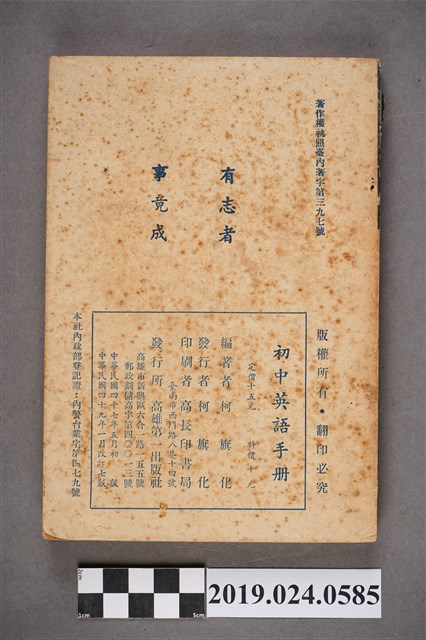 著作權執照臺內著字第三九七號
有志者
事竟成
版權所有·翻印必究
初中英語手册
定價十五元 特價十元
編著者 柯旗化
發行者 柯旗化
臺南市西門路八巷十四號
印刷者 高長印書局
發行所 高雄第一出版社
高雄市新興區六合一路一五五號
郵政劃儲高字第四〇〇一三號
中華民國四十七年五月初版
中華民國四十九年一月改訂七版
本社內政部登記證：內警台業字第四七九號
2cm
1cm
5cm
2019.024.0585